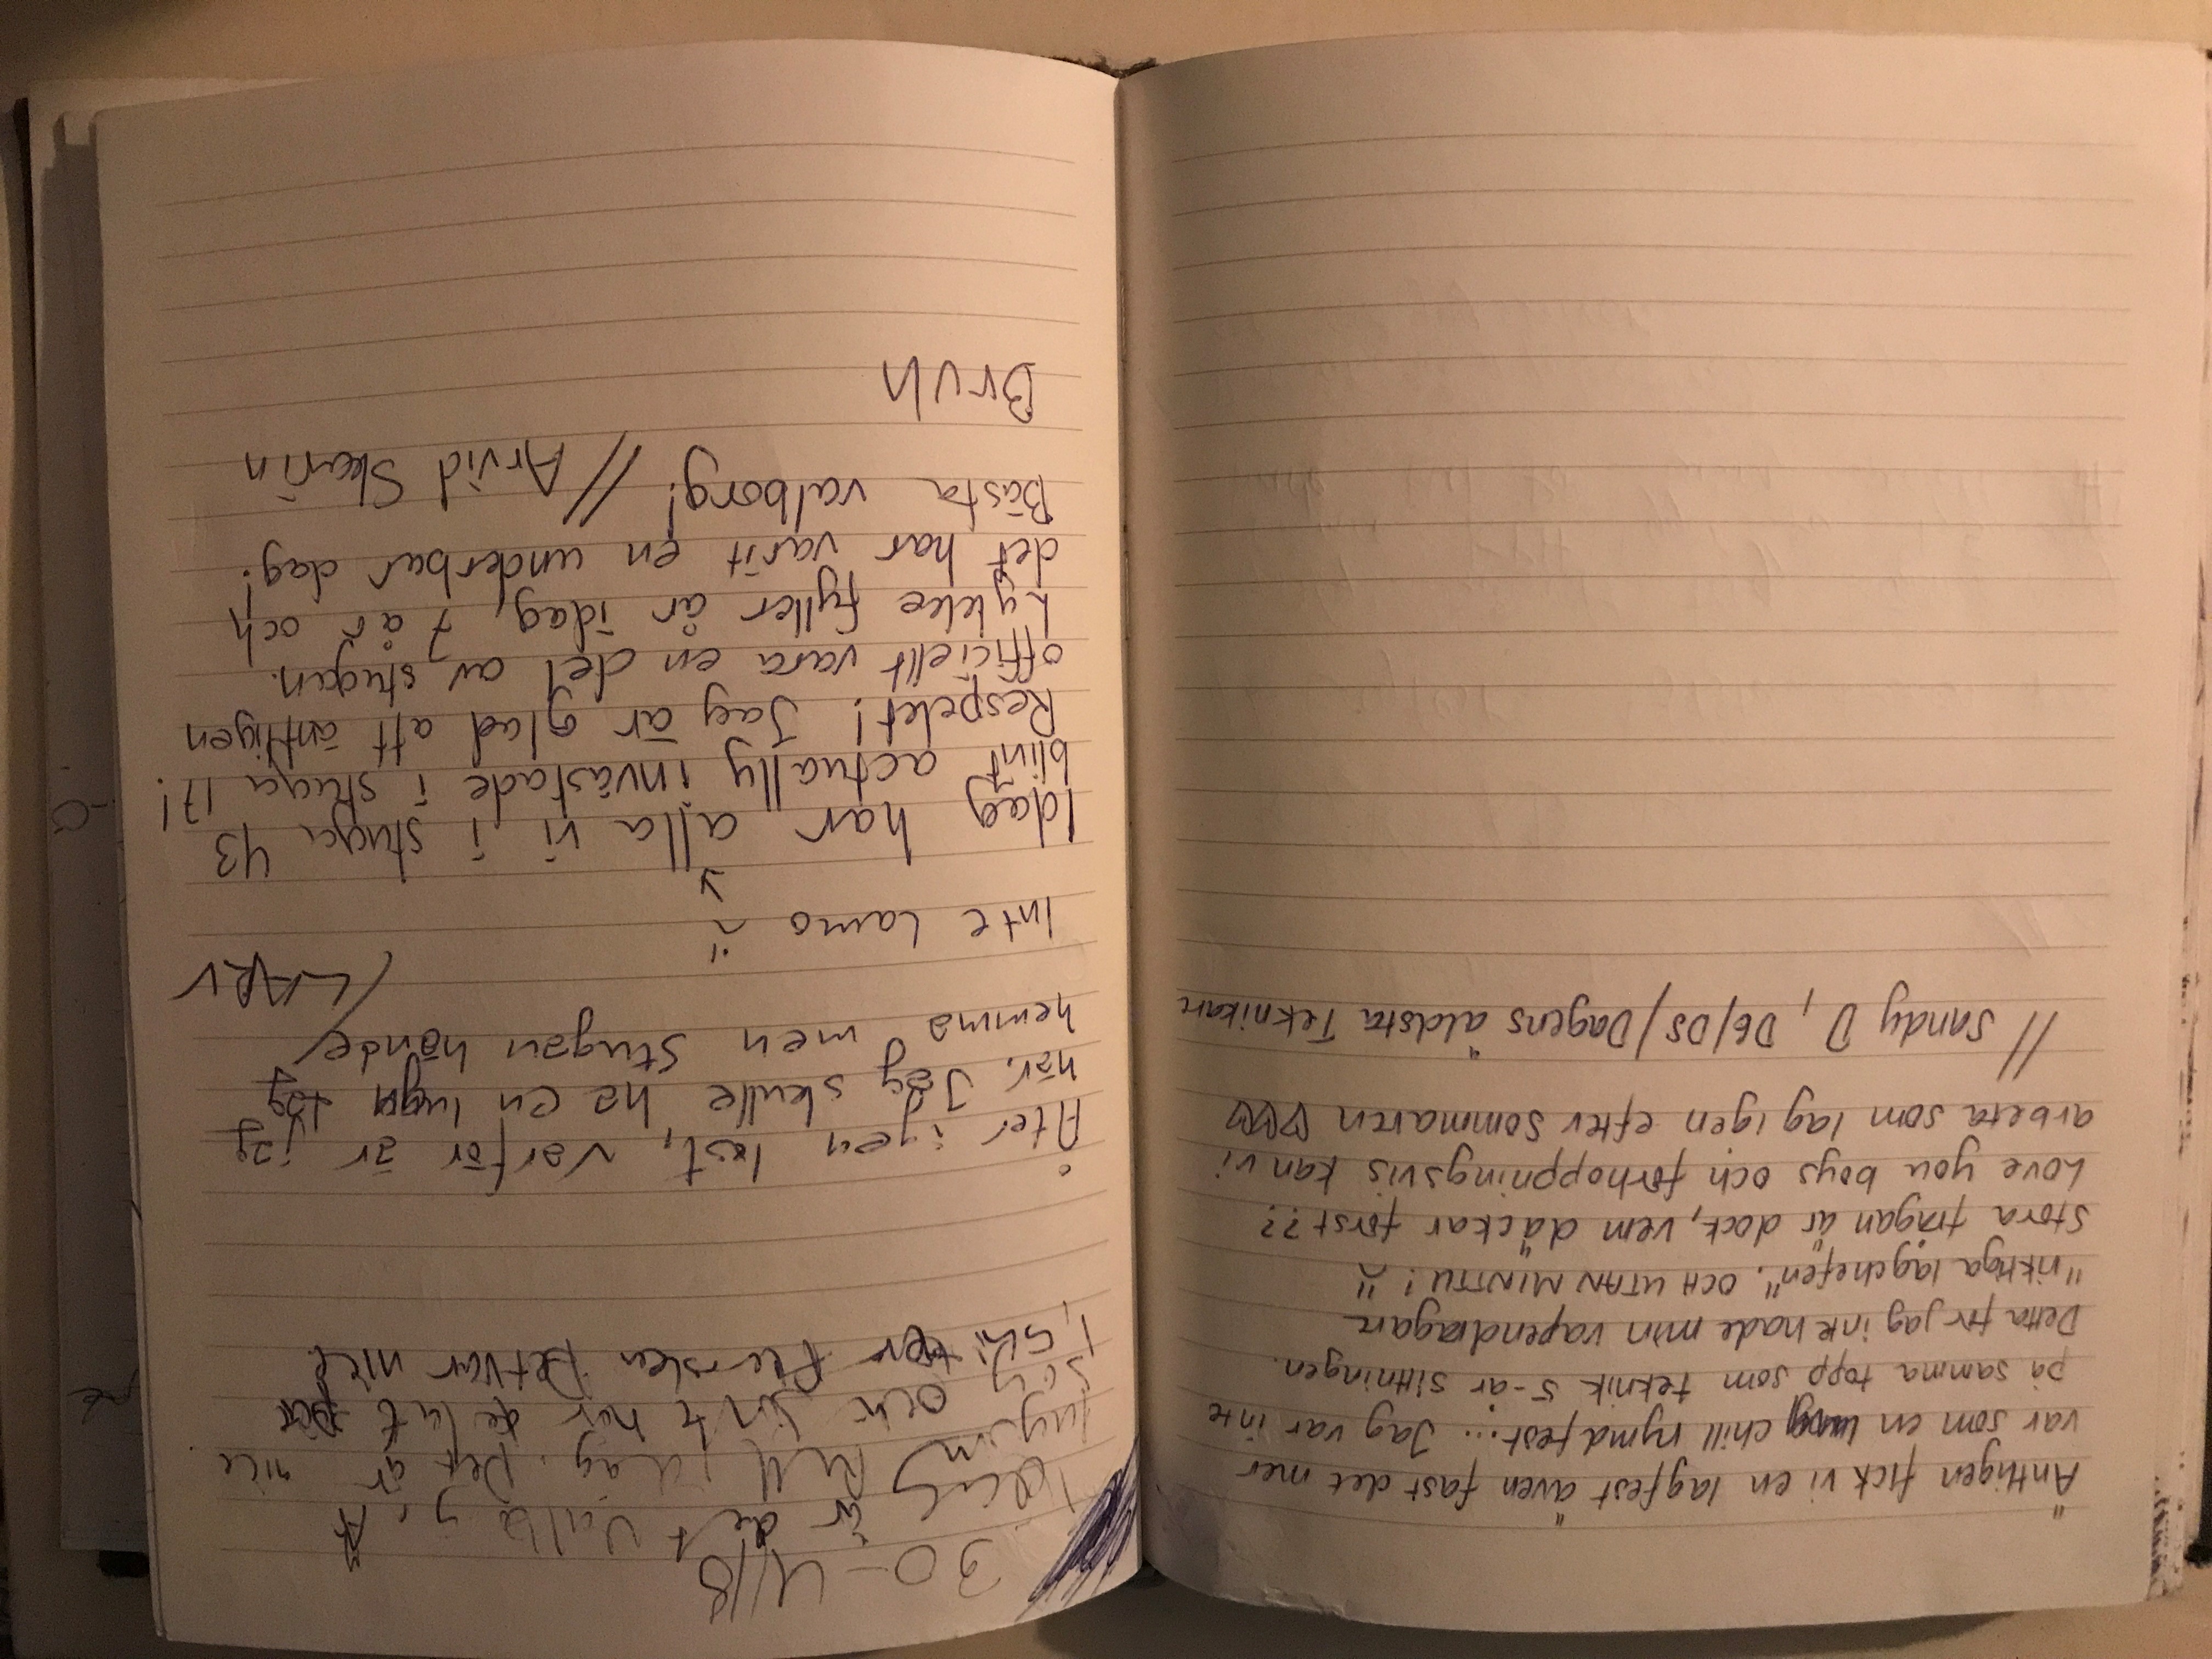 "Äntligen fick vi en lagfest även fast det mer
var som en chill hymdfest... Jag var inte
på samma topp som teknik 5-år sittningen.
Detta för jag ink hade min vapendragare
"riktiga lagchefen". OCH UTAN MINTTU! ¨
Stora frågan är dock, vem däckar först??
Love you boys och förhoppningsvis kan vi
arbeta som lag igen efter sommaren
// Sandy D, D6/DS/Dagens äldsta Teknikare
30-4/18
är det
lugn Rull idag. Det är nice
och här
Det var nice
Åter igen låst, varför är jag
här. Jag skulle ha en lugn dag
hemma men stugan hände
/LARV
Inte Lamo
Idag har alla vi i stuga 43
blint actually invästade i stuga 17!
Respekt! Jag är glad att äntligen
officiellt vara en del av stugan.
Lykke fyller år idag, 7 år och
det har varit en underbar dag!
Bästa valborg! // Arvid Skarin
Bruh